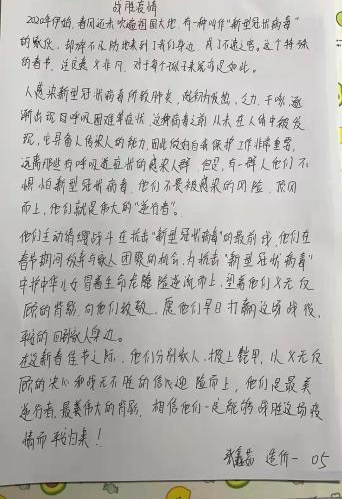 战胜疫情
2020年伊始,春风还未吹遍祖国大地,有一种叫作"新型冠状病毒"
的家伙,却猝不及防地来到了我们身边,成了不速之客,这个特殊
的春节,注定意义非凡,对于每个孩子来说亦是如此。
人感染新型冠状病毒所致肺炎,起初为发热、乏力、干咳、逐
渐出现呼吸困难等症状,这种病毒之前从未在人体中被发
现,它具备人传染人的能力,因此做好自我保护工作非常重要,
远离那些有呼吸道症状的感染人群,但是,有一群人他们不
惧怕新型冠状病毒,他们不畏被感染的风险,顶风
而上,他们就是伟大的"逆行者"。
他们主动请缨战斗在抗击"新型冠状病毒"的最前线,他们在
春节期间放弃与家人团聚的机会,为抗击"新型冠状病毒"
中华儿女冒着生命危险逆流而上,望着他们义无反
顾的背影,向他们致敬,愿他们早日打赢这场战役,
平安的回到家人身边。
在这新春佳节之际,他们分别家人,披上铠甲,以义无反
顾的决心和战无不胜的信心迎险而上,他们是最美
逆行者,最美伟大的背影,相信他们一定能够战胜这场疫
情而平安归来!
造价一 05